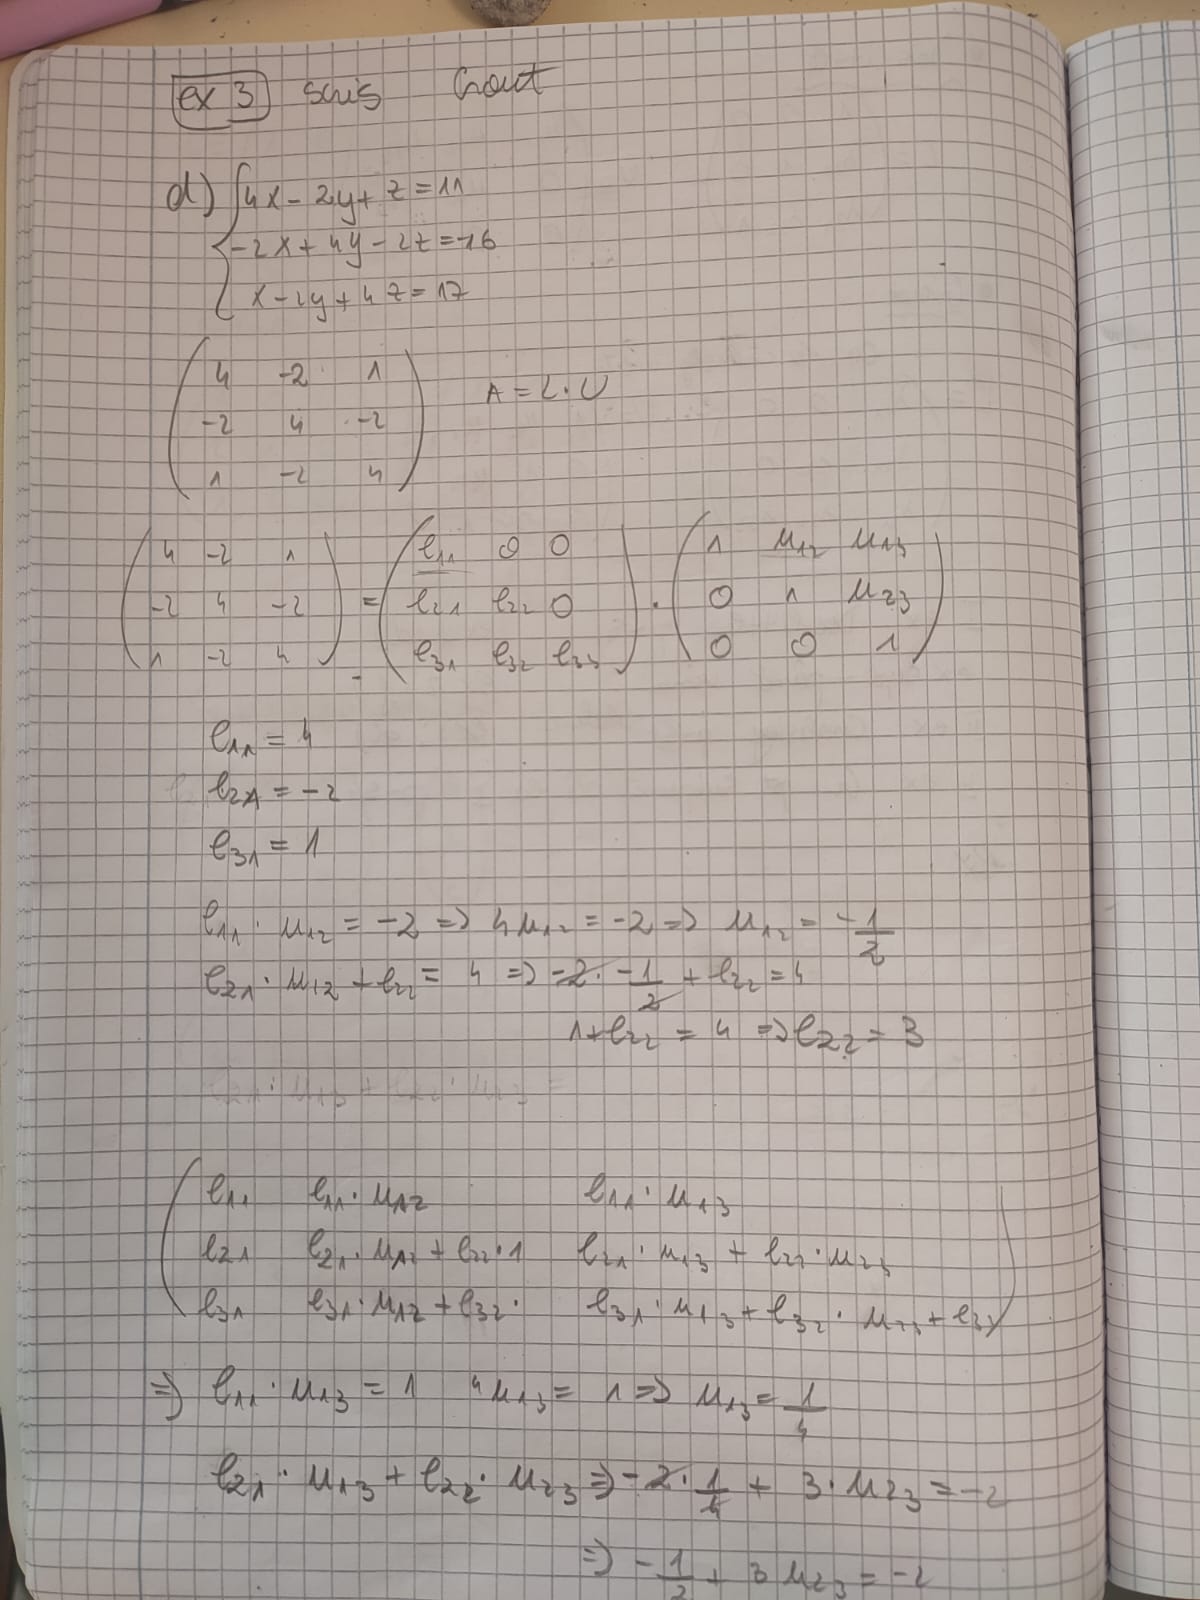 ex 3 suis Crout
d) { 4x - 2y + z = 11
-2x + 4y - 2z = -16
x - 2y + 4z = 17
( 4 -2 1
-2 4 -2
1 -2 4 ) A = L · U
( 4 -2 1
-2 4 -2
1 -2 4 ) = ( l₁₁ 0 0
l₂₁ l₂₂ 0
l₃₁ l₃₂ l₃₃ ) · ( 1 μ₁₂ μ₁₃
0 1 μ₂₃
0 0 1 )
l₁₁ = 4
l₂₁ = -2
l₃₁ = 1
l₁₁ · μ₁₂ = -2 => 4μ₁₂ = -2 => μ₁₂ = -1/2
l₂₁ · μ₁₂ + l₂₂ = 4 => -2 · -1/2 + l₂₂ = 4
1 + l₂₂ = 4 => l₂₂ = 3
l₂₁ · μ₁₃ + l₂₂ · μ₂₃ =
( l₁₁ l₁₁ · μ₁₂ l₁₁ · μ₁₃
l₂₁ l₂₁ · μ₁₂ + l₂₂ · 1 l₂₁ · μ₁₃ + l₂₂ · μ₂₃
l₃₁ l₃₁ · μ₁₂ + l₃₂ · l₃₁ · μ₁₃ + l₃₂ · μ₂₃ + l₃₃ )
=> l₁₁ · μ₁₃ = 1 4μ₁₃ = 1 => μ₁₃ = 1/4
l₂₁ · μ₁₃ + l₂₂ · μ₂₃ => -2 · 1/4 + 3 · μ₂₃ = -2
=> -1/2 + 3μ₂₃ = -2